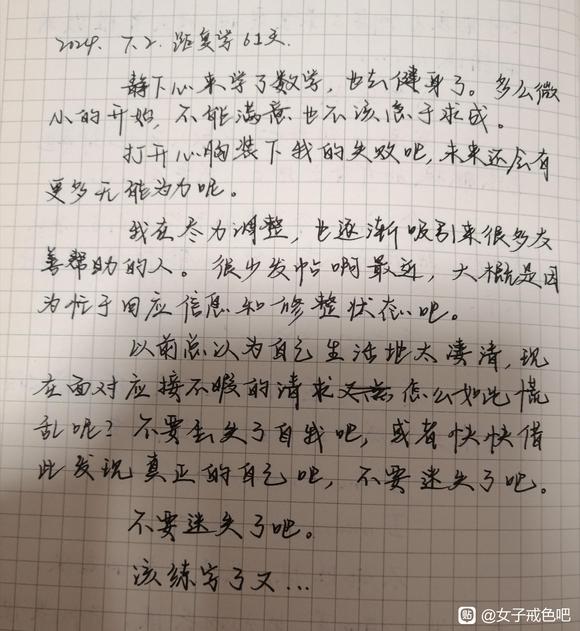 2024. 7.2. 距复学61天.
静下心来学了数学, 也去健身了。多么微
小的开始, 不能满意也不该急于求成。
打开心胸装下我的失败吧, 未来还会有
更多无能为力呢。
我在尽力调整, 也逐渐吸引来很多友
善帮助的人。很少发帖啊最近, 大概是因
为忙于回应信息和修整状态吧。
以前总认为自己生活地太凄清, 现
在面对应接不暇的请求又怎么如此慌
乱呢? 不要丢失了自我吧, 或者快快借
此发现真正的自己吧, 不要迷失了吧。
不要迷失了吧。
该练字了又...
贴 @女子戒色吧